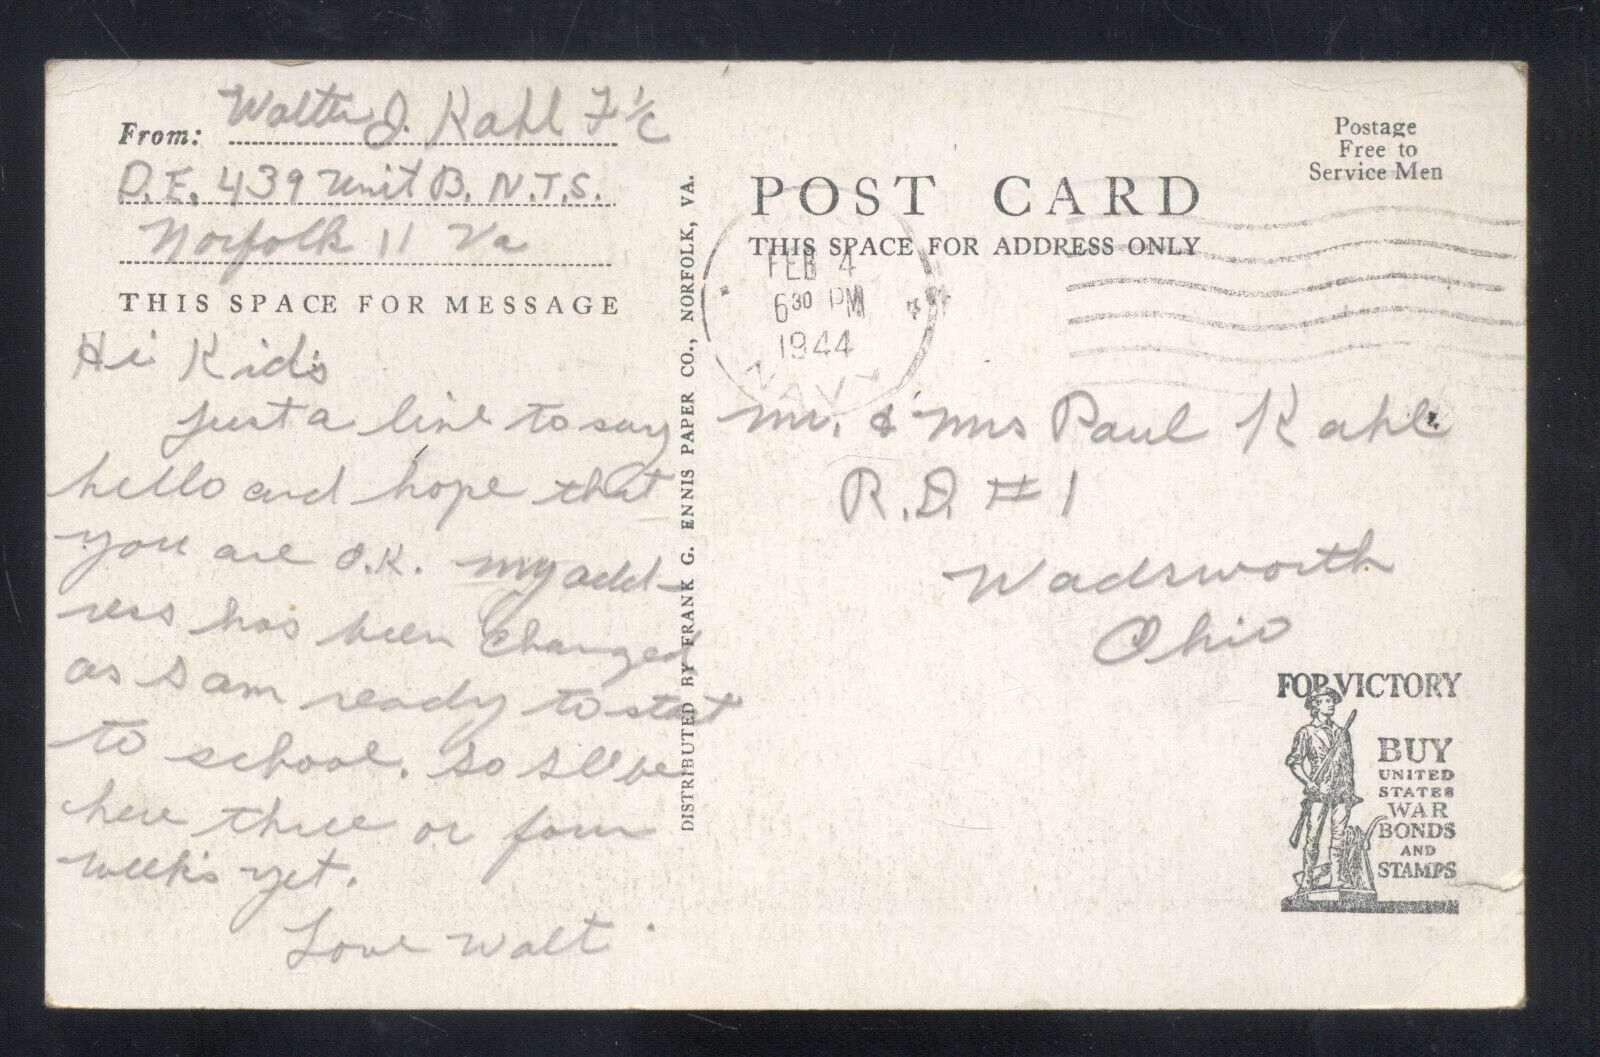 From: Walter J. Kahl F 1/c
D.E. 439 Unit B. N.T.S.
Norfolk 11 Va
THIS SPACE FOR MESSAGE
Hi Kid's
Just a line to say
hello and hope that
you are O.K. My add-
ress has been changed
as I am ready to start
to school. So I'll be
here three or four
week's yet.
Love Walt
DISTRIBUTED BY FRANK G. ENNIS PAPER CO., NORFOLK, VA.
Postage
Free to
Service Men
POST CARD
THIS SPACE FOR ADDRESS ONLY
FEB 4
6 30 PM
1944
NAVY
Mr. & Mrs Paul Kahl.
R.D. #1
Wadsworth
Ohio
FOR VICTORY
BUY
UNITED
STATES
WAR
BONDS
AND
STAMPS